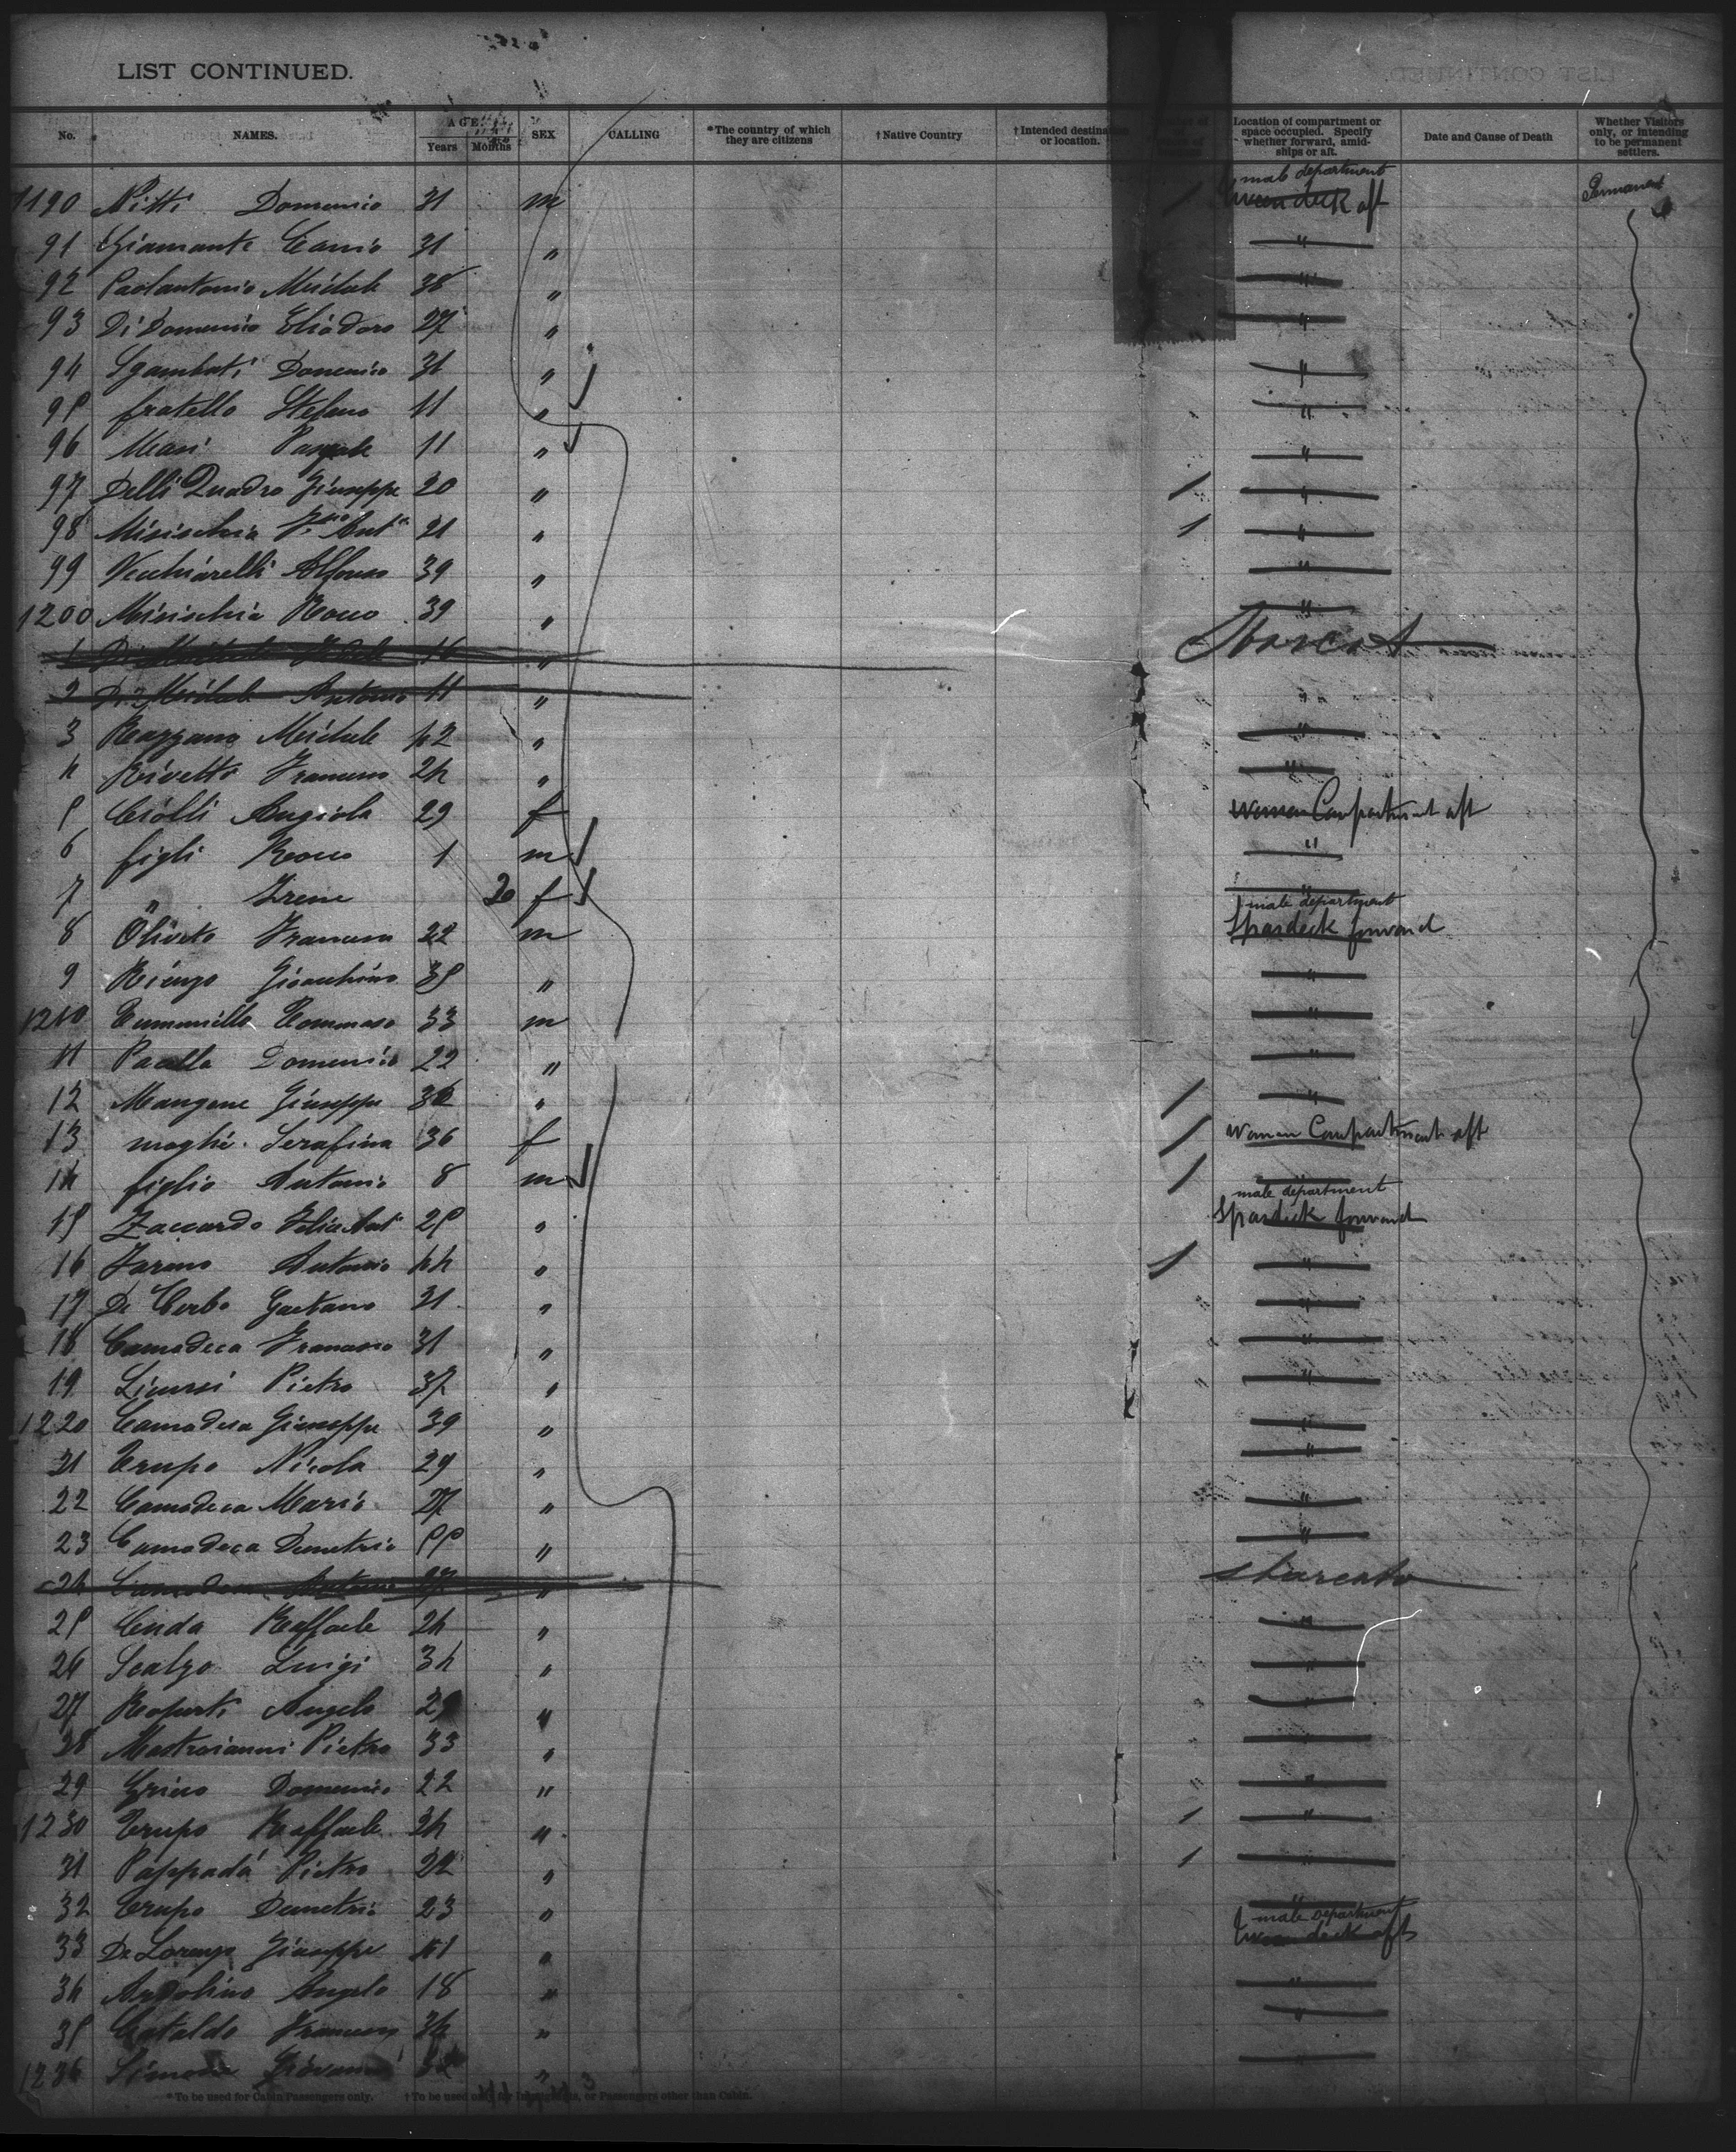 LIST CONTINUED.
No. NAMES. AGE Years Months SEX CALLING *The country of which they are citizens †Native Country †Intended destination or location. Location of compartment or space occupied. Specify whether forward, amidships or aft. Date and Cause of Death Whether Visitors only, or intending to be permanent settlers.
male department
1190 Nitti Domenico 31 m aft Permanent
91 Giamante 31 "
92 Paolantonio Michele 38 " "
93 Di Domenico Eliodoro 27 " "
94 Sgambati Domenico 31 " "
95 fratello Stefano 11 " "
96 Masi Pasquale 11 " "
97 Delli Quadro Giuseppe 20 " "
98 Misischia Ant 21 " "
99 Vecchiarelli Alfonso 39 " "
1200 Misischia Rocco 39 " "
1 16 "
2 De Michele Antonio 11 " "
3 Razzano Michele 42 " "
4 Rivetto Francesco 24 " "
5 Ciolli Angiola 29 f women Compartment aft
6 figli Rocco 1 m "
7 " Irene 20 f "
male department
8 Oliveto Francesco 22 m Spardeck forward
9 Rienzo Gioachino 35 " "
1210 Tommaso 33 m "
11 Paolla Domenico 22 " "
12 Mangone Giuseppe 36 " "
13 moglie Serafina 36 f women Compartment aft
14 figlio Antonio 8 m "
male department
15 Zaccardo Felice Ant 25 " Spardeck forward
16 Antonio 44 " "
17 De Cerbo Gaetano 31 " "
18 Camodeca Francesco 31 " "
19 Licursi Pietro 37 " "
1220 Camodeca Giuseppe 39 " "
21 Trupo Nicola 29 " "
22 Camodeca Mario 27 " "
23 Camodeca Demetrio 55 " "
24 Antonio 27 " sbarcato
25 Raffaele 24 " "
26 Scalzo Luigi 34 " "
27 Angelo " "
28 Mastroianni Pietro 33 " "
29 Domenico 22 " "
1230 Trupo Raffaele 24 " "
31 Pappadá Pietro 22 " "
32 Trupo Demetrio 23 " "
male department
33 De Lorenzo Giuseppe 41 " aft
34 Angelo 18 " "
35 Cataldo Francesco 34 " "
1236 Simone Giovanni " "
*To be used for Cabin Passengers only. †To be used only for Immigrants, or Passengers other than Cabin.